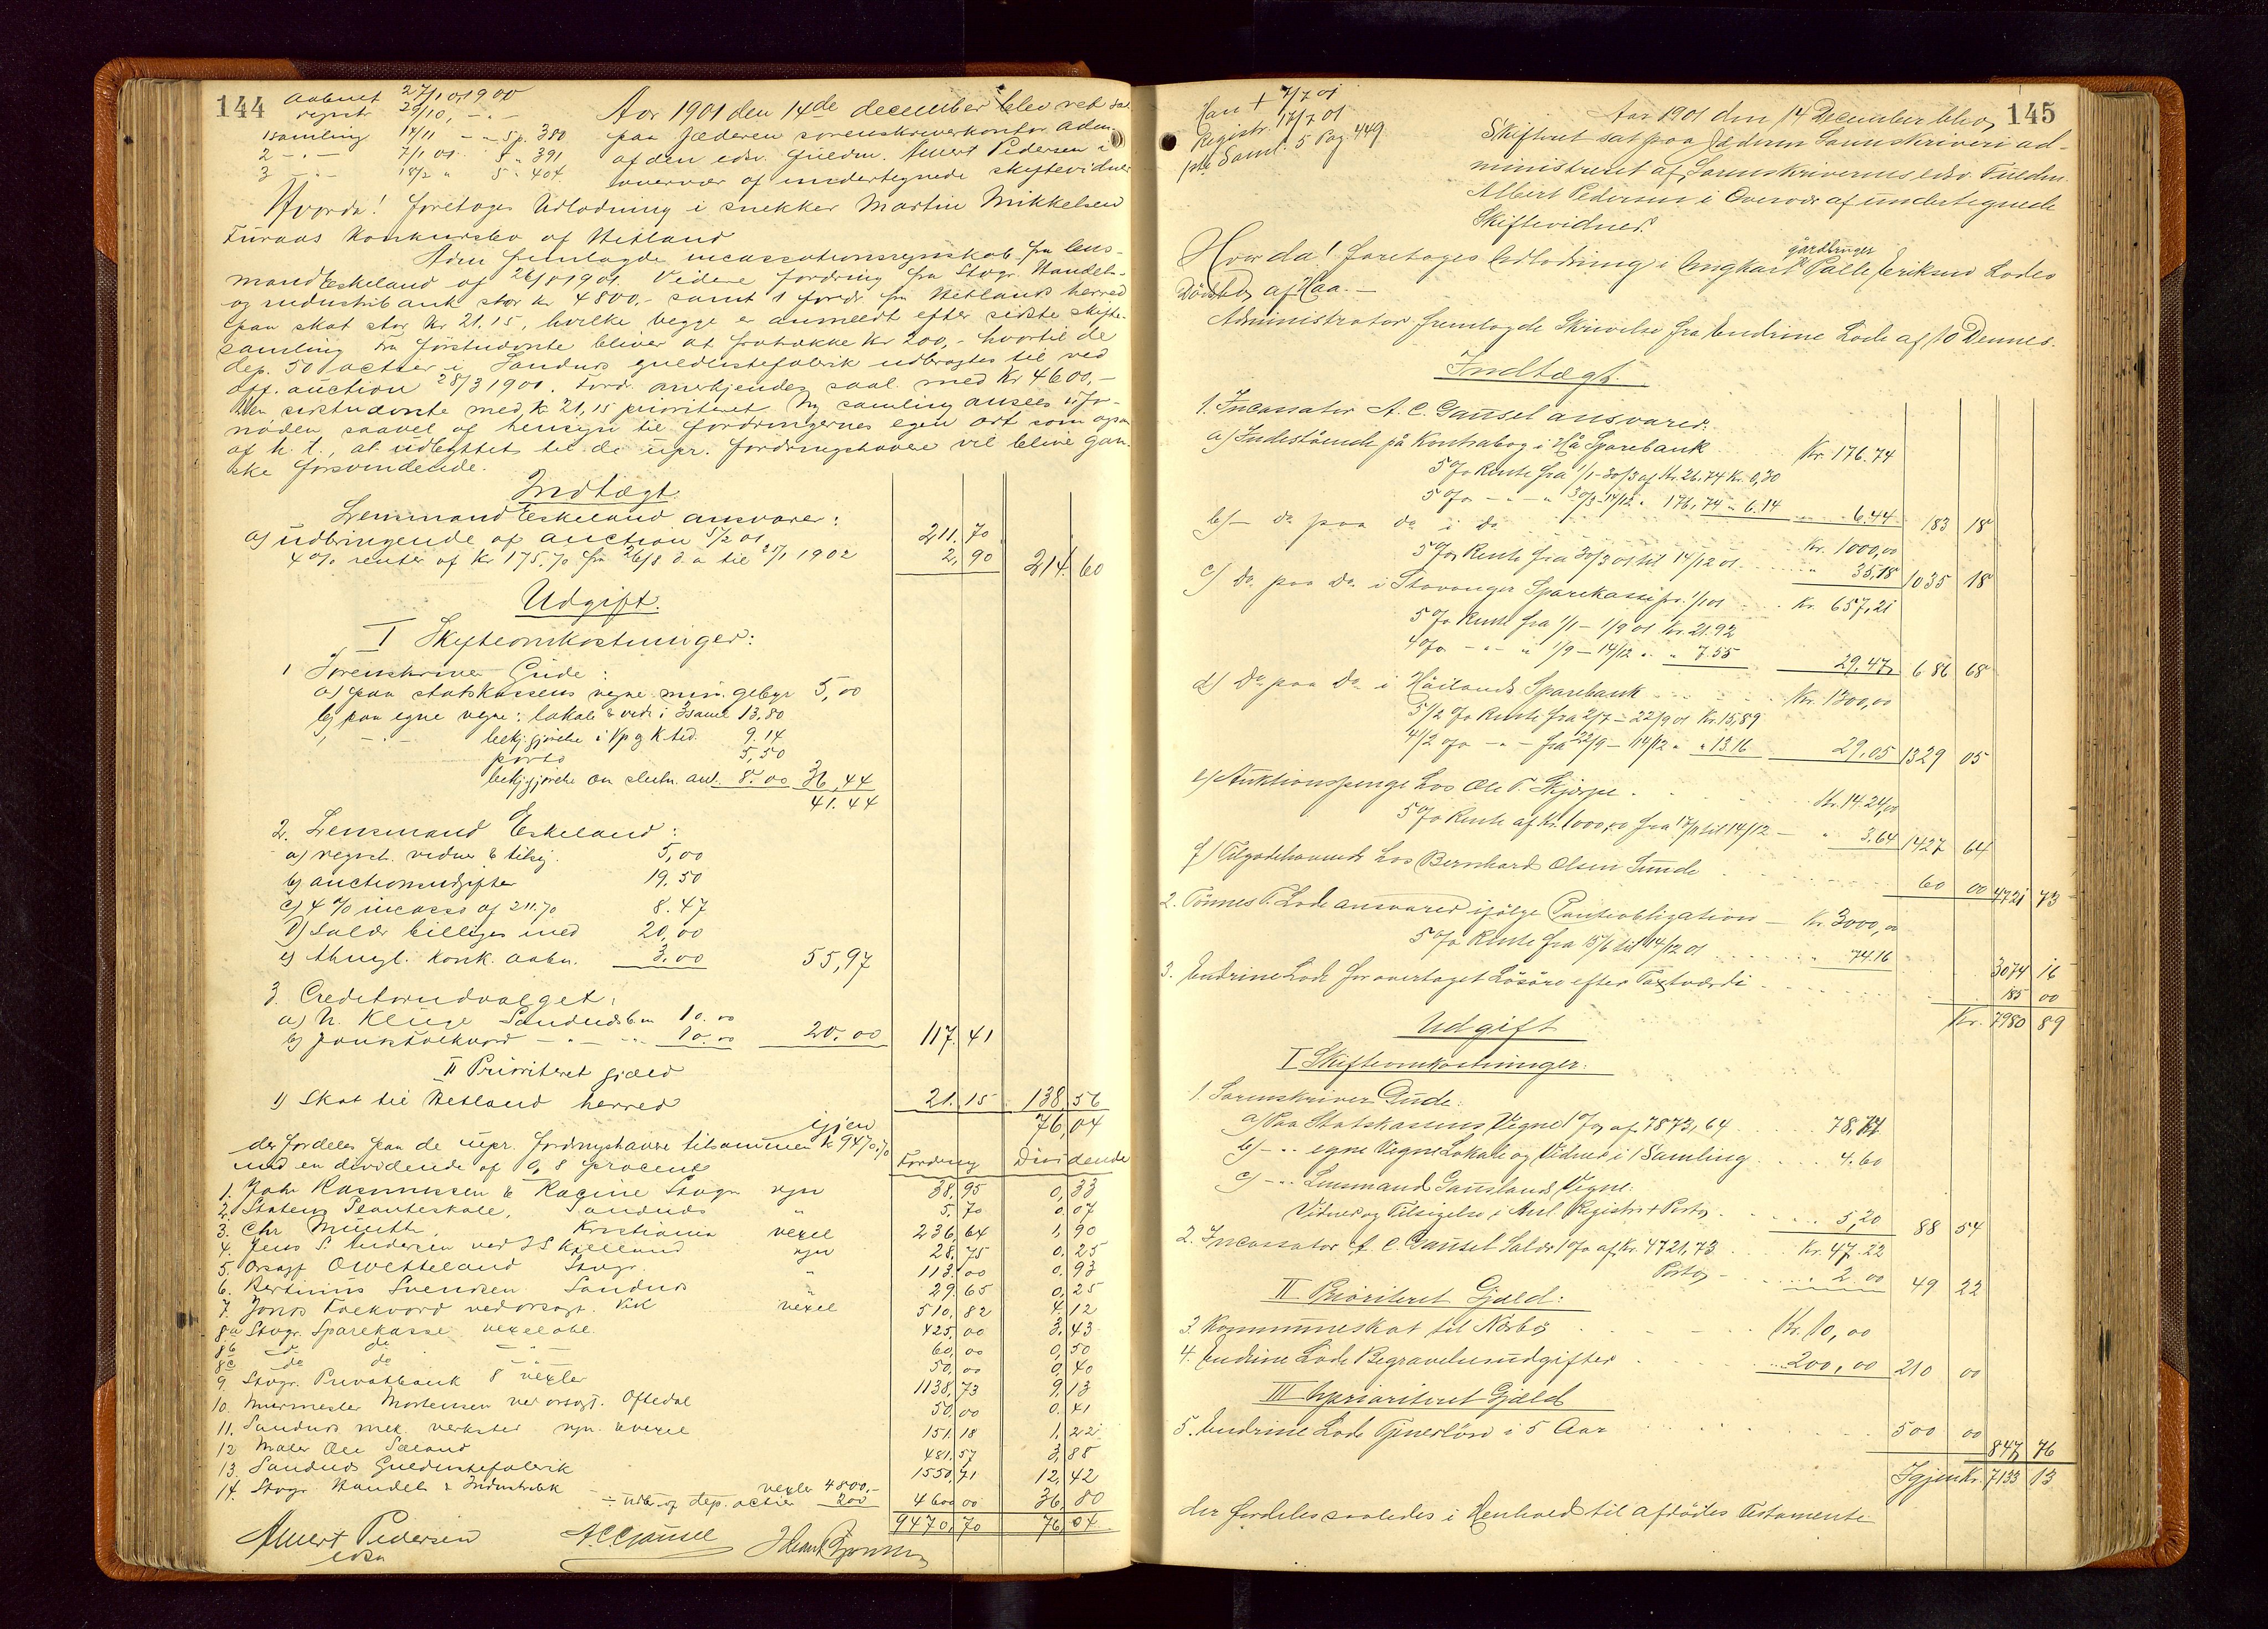 144
Aabnet 27/10 1900
registr 29/10 - " -
1 samling 14/11 - " - 5 p. 380
2 - " - 7/1 01. 5 " 391
3 - " - 18/2 " 5 " 404.
Aar 1901 den 14de december blev ret sat
paa Jæderen sorenskriverkontor adm.
af den edsv. fuldm. Albert Pedersen i
overvær af undertegnede skiftevidner
Hvorda! foretoges Udlodning i snekker Martin Mikkelsen
Furaas Konkursbo af Hetland
Adm fremlagde incassationsregnskab fra lens-
mand Eskeland af 26/8 1901. Videre fordring fra Stvgr. Handels-
og industribank stor kr 4800,- samt 1 fordr. fra Hetlands herred
paa skat stor kr 21.15, hvilke begge er anmeldt efter sidste skifte-
samling. Fra førstnævnte bliver at fratrække Kr 200,- hvortil de
dep. 50 actier i Sandnes guldlistefabrik udbragtes til ved
off. auction 28/3 1900. Ford. anerkjendes saal. med Kr 4600,-
Den sidstnævnte med k 21,15 prioriteret. Ny samling ansees ufor-
nøden saavel af hensyn til fordringernes egen art som ogsaa
af h. t., at udbyttet til de upr. fordringshavere vil blive gan-
ske forsvindende.
Indtægt
Lensmand Eskeland ansvarer:
a) udbringende af auction 5/2 01 211.70
4 % renter af Kr 175.70 fra 26/8 d. a til 25/1 1902 2,90 214.60
Udgift.
I Skifteomkostninger:
1 Sorenskriver Gude:
a) paa statskassens vegne min. gebyr 5,00
b) paa egne vegne: lokale & vidn i 3 saml 13,80
" - " - bekjgjørelse i Vp g K. tid. 9.14
porto 5,50
bekjgjørelse om slutn. anl. 8.00 36,44
41.44
2. Lensmand Eskeland:
a) registr. vidner & tilsig. 5,00
b) auctionsudgifter 19.50
c) 4 % incasso af 211.70 8.47
d) Salær billiges med 20,00
e) thingl. konk. aabn. 3.00 55,97
3. Creditorudvalget:
a) H. Kluge Sandnes 10.00
b) Jonas Folkvord - " - 10.00 20.00 117.41
II Prioriteret gjæld
1) Skat til Hetland herred 21.15 138,56
igjen 76,04
der fordeles paa de upr. fordringshavere tilsammen k 9470.70
med en dividende af 0,8 procent
Fordring Dividende
1. Johs Rasmussen & Racine Stvgr regn 38.95 0,33
2. Statens Planteskole, Sandnes " 5.70 0,07
3. Chr Münth, Kristiania vexel 236,64 1,90
4. Jens S. Andersen ved J S Kielland regn 28,75 0,25
5. Orsagf Stvgr. " 113.00 0.93
6. Bertinius Svendsen Sandnes " 29.65 0,25
7. Jonas Folkvord ved orsagf. vexel 510,82 4.12
8a Stvgr. Sparekasse vexelobl. 425,00 3.43
8b do do - " - 60,00 0,50
8c do do - " - 50,00 0,40
9. Stvgr. Privatbank 8 vexler 1138,73 9.13
10. Murmester Mortensen ved orsagf. Oftedal 50,00 0.41
11. Sandnes mek. verksted regn. & vexel 151.18 1,22
12 Maler Ole Sæland 481,57 3,88
13. Sandnes Guldlistefabrik 1550,71 12,42
14. Stvgr Handels & Industribk vexler 4800,-
÷ udb. af dep. actier 200 4600,00 36,80
9470,70 76,04
Albert Pedersen
edsv
A. C. Gausel
145
Han + 7/7 01
Registr. 17/7 01
1ste Saml. 5 Pag. 449.
Aar 1901 den 14 December blev
Skifteret sat paa Jæderen Sorenskriveri ad-
ministreret af Sorenskriverens edsv. Fuldm.
Albert Pedersen i Overvær af undertegnede
Skiftevidner.
Hvorda! foretoges Udlodning i Ungkarl gårdbruger Palle Eriksen Lodes
Dødsbo af Haa. -
Administrator fremlagde Skrivelse fra Endrine Lode af 10 Dennes.
Indtægt.
1. Incassator A. C. Gausel ansvarer:
a) Indestående på Kontrabog i Hå Sparebank Kr. 176.74
5 % Rente fra 1/1 - 30/3 af Kr. 26.74 Kr. 0,30
5 % - " - " 30/3 - 14/12 " 176,74 " 6.14 6.44 183 18
b) - do paa do i do Kr. 1000,00
5 % Rente fra 30/3 01 til 14/12 01 " 35,18 1035 18
c) do paa do i Stavanger Sparekasse pr. 1/1 01 Kr. 657,21
5 % Rente fra 1/1 - 1/9 01 Kr. 21.92
4 % - " - " 1/9 - 14/12 " " 7.55 29,47 686 68
d) do paa do i Høilands Sparebank Kr. 1300,00
5 1/2 % Rente fra 2/7 - 22/9 01 Kr. 15,89
4 1/2 % - " - fra 22/9 - 14/12 " " 13.16 29,05 1329 05
e) Auktionspenge hos Ole T. Skjærpe Kr. 1424,00
5 % Rente af Kr. 1000,00 fra til 14/12 - " 3.64 1427 64
f) Tilgodehavende hos Bernhard Olsen Sunde 60 00 4721 73
2. Tønnes P. Lode ansvarer ifølge Panteobligation - Kr. 3000,00
5 % Rente fra 15/6 til 14/12 01 " 74.16 3074 16
3. Endrine Lode for overtaget Løsøre efter Taxtværdi 185 00
Kr. 7980 89
Udgift
I Skifteomkostninger.
1. Sorenskriver Gude:
a) Paa Statskassens Vegne 1 % af 7873,64 78,74
b) - " egne Vegne Lokale og Vidner i 1 Samling 4.60
c) - " Lensmand Gauslands Vegne:
Vidner og Tilsigelse i Anl. Registr. + Porto 5,20 88 54
2. Incassator A. C. Gausel Salær 1 % af Kr. 4721,73 Kr. 47.22
Porto - " 2.00 49 22
II Prioriteret Gjæld:
3. Kommuneskat til Nærbø Kr. 10,00
4. Endrine Lode Begravelsesudgifter 200,00 210 00
III Uprioriteret Gjæld
5. Endrine Lode Tjenerløn i 5 Aar 500 00 847 76
Igjen Kr. 7133 13
der fordeles saaledes i Henhold til afdødes Testamente